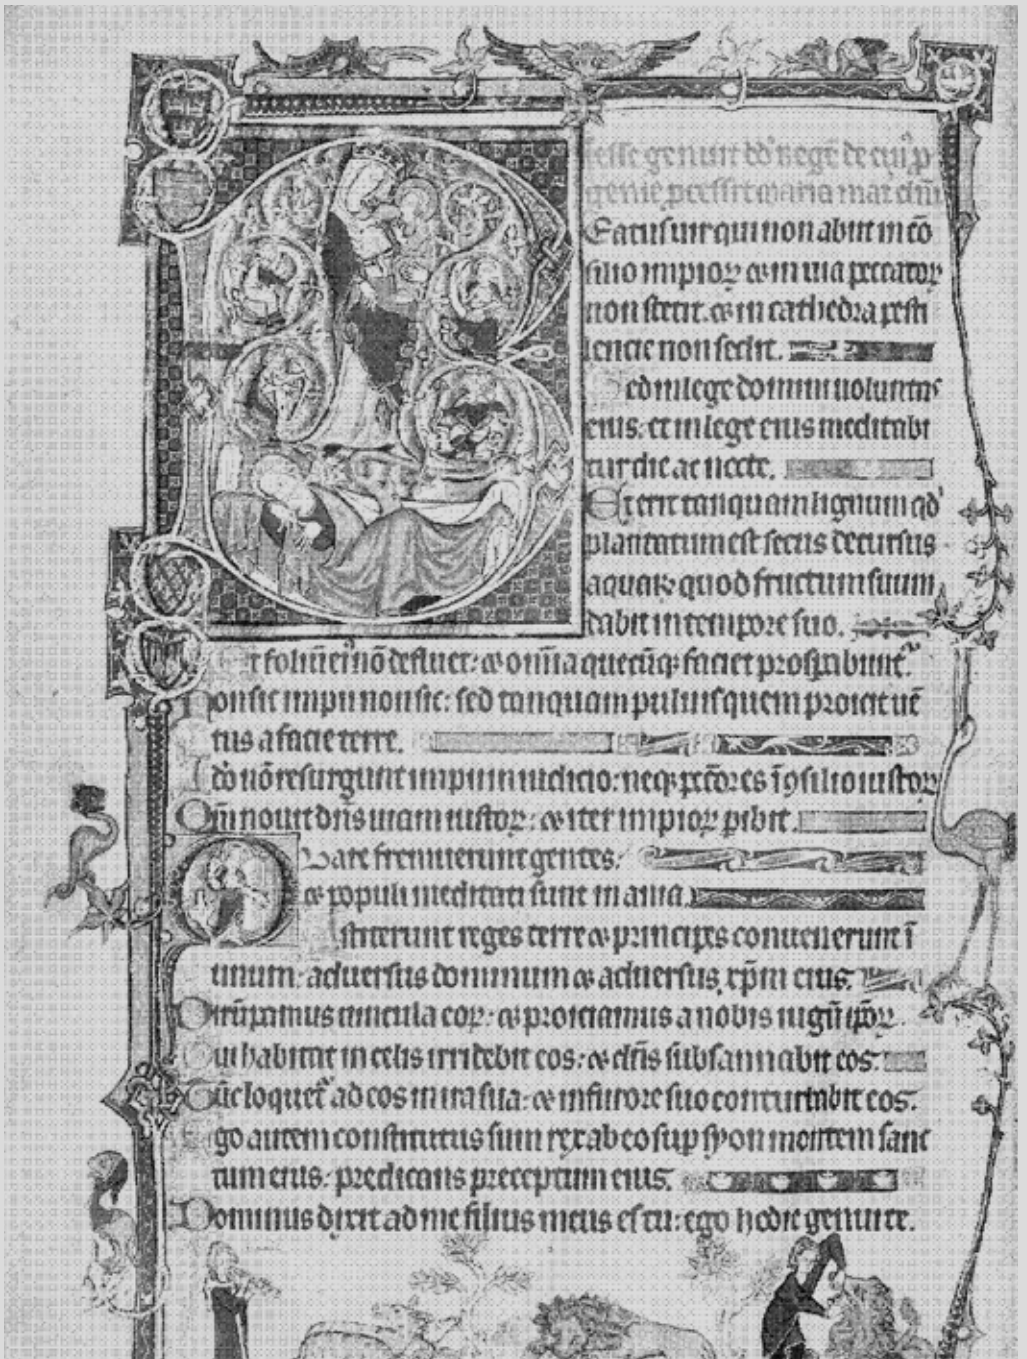 iesse genuit dd regē de cuiꝰ p
genie pcessit maria mat̄ chr̄i
Eatus uir qui non abiit in cō
silio impioꝝ & in uia peccatoꝝ
non stetit. & in cathedra pesti
lencie non sedit.
Sed in lege domini uoluntas
eius: et in lege eius meditabi
tur die ac nocte.
Et erit tanquam lignum qd̓
plantatum est secus decursus
aquaꝝ quod fructum suum
dabit in tempore suo.
Et foliū eiꝰ nō defluet: & om̄ia quecūqꝫ faciet prosꝑabunt̉.
Non sic impii non sic: sed tanquam puluis quem proicit uē
tus a facie terre.
Ido̓ nō resurgunt impii in iudicio: neqꝫ pctōres ī ꝯsilio iustoꝝ
Qm̄ nouit dn̄s uiam iustoꝝ: & iter impioꝝ ꝑibit.
Quare fremuerunt gentes:
& populi meditati sunt inania.
Astiterunt reges terre & principes conuenerunt ī
unum: aduersus dominum & aduersus xp̄m eius.
Dirūpamus uincula eoꝝ: & proiciamus a nobis iugū ipoꝝ.
Qui habitat in celis irridebit eos: & dn̄s subsannabit eos.
Tūc loquet̉ ad eos in ira sua: & in furore suo conturbabit eos.
Ego autem constitutus sum rex ab eo sup syon montem sanc
tum eius: predicans preceptum eius.
Dominus dixit ad me filius meus es tu: ego hodie genui te.